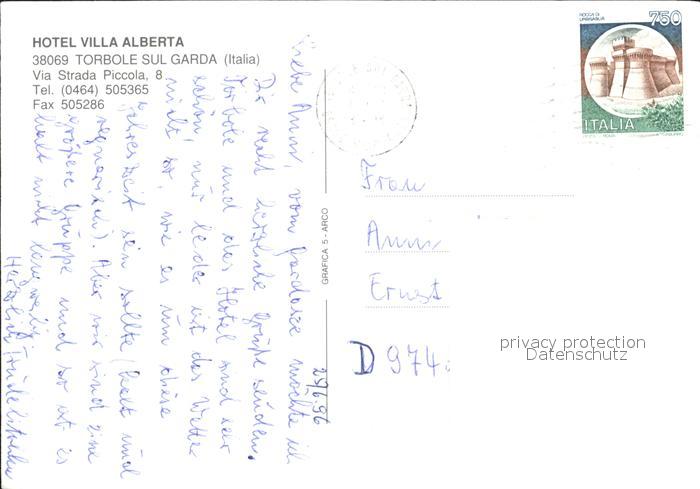 HOTEL VILLA ALBERTA
38069 TORBOLE SUL GARDA (Italia)
Via Strada Piccola, 8
Tel. (0464) 505365
Fax 505286
29.6.96
Liebe Anni, vom Gardasee möchte ich
Dir recht herzliche Grüße senden.
Torbole und das Hotel sind sehr
schön, nur leider ist das Wetter
nicht so, wie es um diese
Jahreszeit sein sollte (kalt und
regnerisch). Aber wir sind eine
größere Gruppe und so ist es
halt nicht langweilig.
Herzlich Trudel
GRAFICA 5 - ARCO
ROCCA DI
URBISAGLIA
750
ITALIA
Frau
Anni
Ernst
D 974
privacy protection
Datenschutz